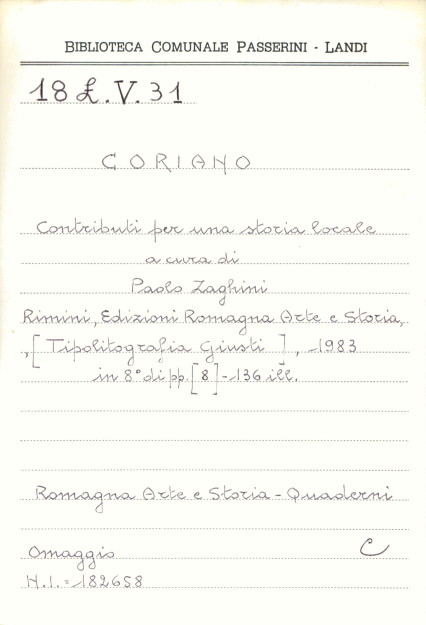 BIBLIOTECA COMUNALE PASSERINI - LANDI
18 £.V.31
CORIANO
Contributi per una storia locale
a cura di
Paolo Zaghini
Rimini, Edizioni Romagna Arte e Storia,
, [Tipolitografia Giusti], 1983
in 8° di pp. [8]-136 ill.
Romagna Arte e Storia - Quaderni
Omaggio C
N.I. = 182658